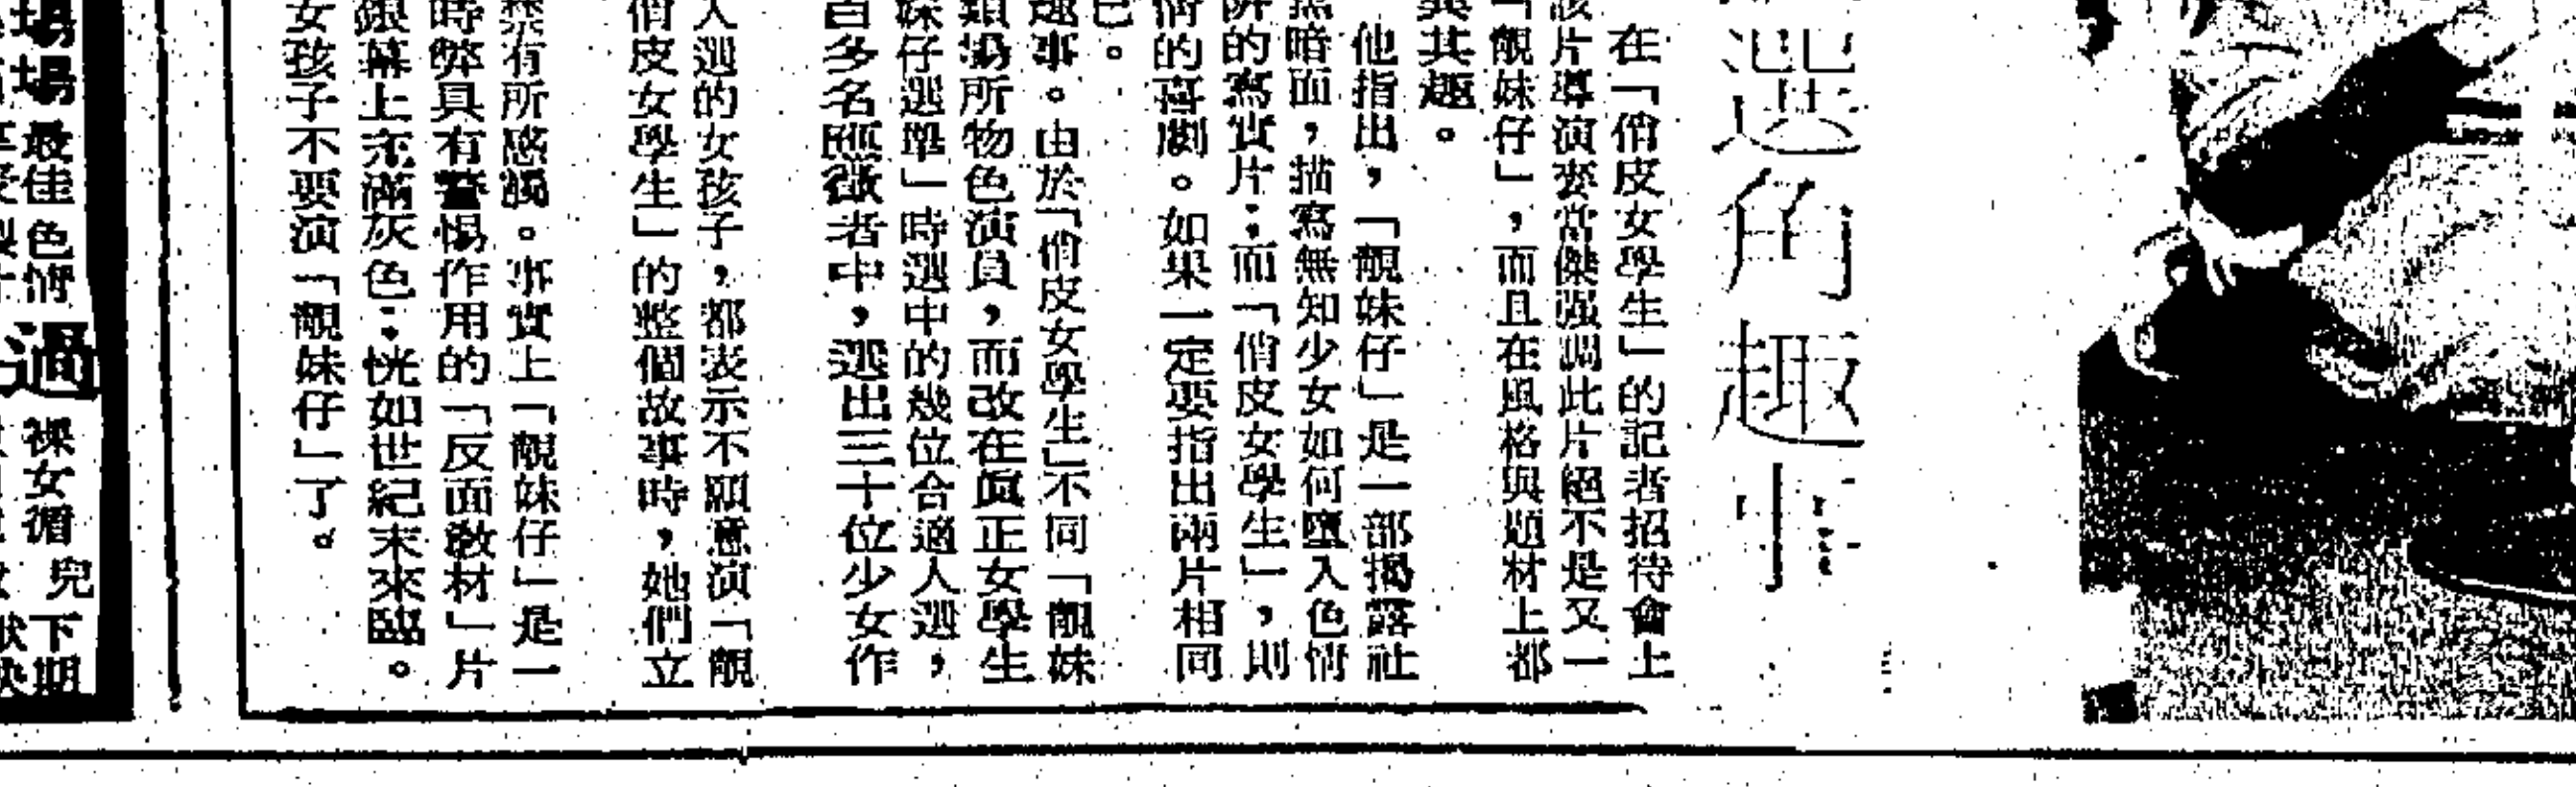 選角趣事
在「俏皮女學生」的記者招待會上
該片導演麥當傑强調此片絕不是又一
「靚妹仔」，而且在風格與題材上都
異其趣。
他指出，「靚妹仔」是一部揭露社
黑暗面，描寫無知少女如何墮入色情
阱的寫實片；而「俏皮女學生」，則
情的喜劇。如果一定要指出兩片相同
已。
趣事。由於「俏皮女學生」不同「靚妹
類場所物色演員，而改在眞正女學生
妹仔選舉」時選中的幾位合適人選，
百多名應徵者中，選出三十位少女作
入選的女孩子，都表示不願意演「靚
俏皮女學生」的整個故事時，她們立
禁有所感觸。事實上「靚妹仔」是一
時弊具有警惕作用的「反面敎材」片
銀幕上充滿灰色；恍如世紀末來臨。
女孩子不要演「靚妹仔」了。
場場
最佳色情
過
裸女循
兒
下期